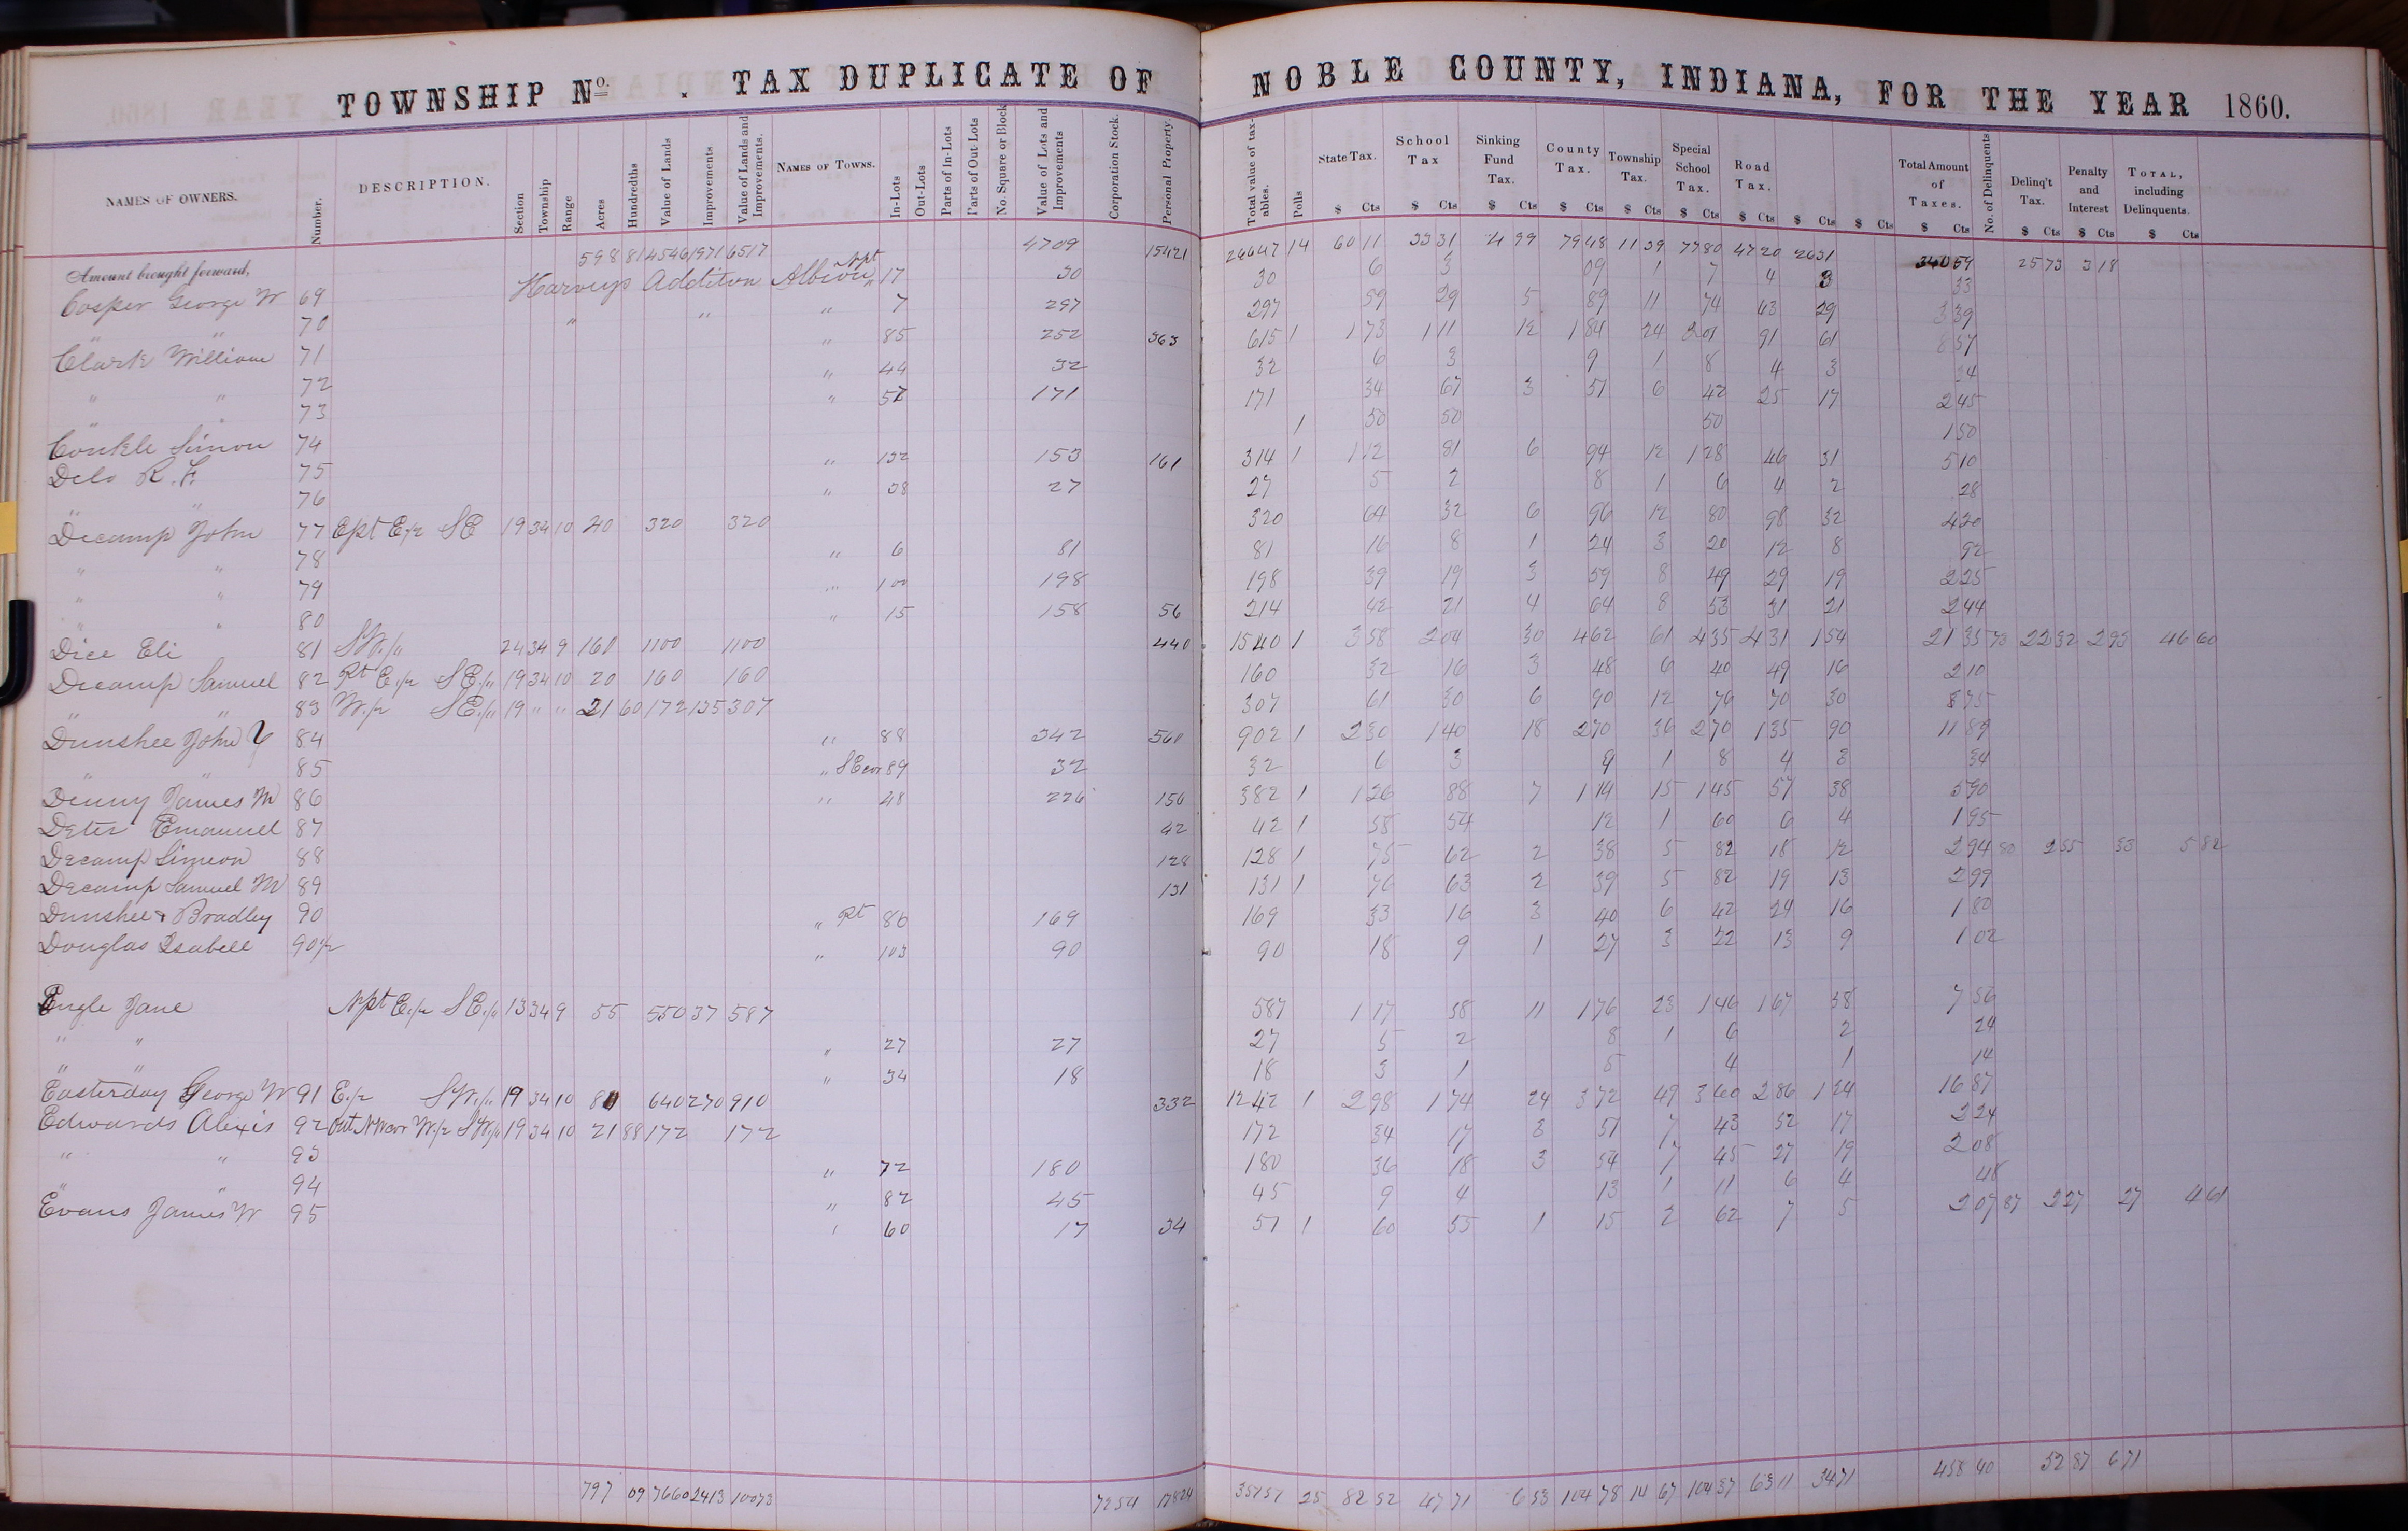 TOWNSHIP No. . TAX DUPLICATE OF NOBLE COUNTY, INDIANA, FOR THE YEAR 1860.
NAMES OF OWNERS. Number. DESCRIPTION. Section Township Range Acres Hundredths Value of Lands Improvements Value of Lands and Improvements. NAMES OF TOWNS. In-Lots Out-Lots Parts of In-Lots Parts of Out-Lots No. Square or Block Value of Lots and Improvements Corporation Stock. Personal Property. Total value of taxables. Polls State Tax. School Tax Sinking Fund Tax. County Tax. Township Tax. Special School Tax. Road Tax. Total Amount of Taxes. No. of Delinquents Delinq't Tax. Penalty and Interest TOTAL, including Delinquents.
$ Cts $ Cts $ Cts $ Cts $ Cts $ Cts $ Cts $ Cts $ Cts $ Cts $ Cts $ Cts $ Cts
Amount brought forward, 598 81 4546 1971 6517 4709 15421 26647 14 60 11 33 31 4 99 79 48 11 39 77 80 47 20 26 31 340 59 25 73 3 18
Cosper George W 69 Harveys Addition Albion Npt 17 30 30 6 3 09 1 7 4 3 33
" " 70 " " " 7 297 297 59 29 5 89 11 74 43 29 3 39
Clark William 71 " 85 252 363 615 1 1 73 1 11 12 1 84 24 2 01 91 61 8 57
" " 72 " 44 32 32 6 3 9 1 8 4 3 34
" " 73 " 57 171 171 34 67 3 51 6 42 25 17 2 45
Conkle Simon 74 1 50 50 50 1 50
Delo R. F. 75 " 132 153 161 314 1 1 12 81 6 94 12 1 28 46 31 5 10
" " 76 " 38 27 27 5 2 8 1 6 4 2 28
Decamp John 77 Ept E/2 SE 19 34 10 40 320 320 320 64 32 6 96 12 80 98 32 4 20
" " 78 " 6 81 81 16 8 1 24 3 20 12 8 92
" " 79 " 100 198 198 39 19 3 59 8 49 29 19 2 25
" " 80 " 15 158 56 214 42 21 4 64 8 53 31 21 2 44
Dice Eli 81 SW/4 24 34 9 160 1100 1100 440 1540 1 3 58 2 04 30 4 62 61 4 35 4 31 1 54 21 35 73 22 32 2 93 46 60
Decamp Samuel 82 Pt E/2 SE/4 19 34 10 20 160 160 160 32 16 3 48 6 40 49 16 2 10
" " 83 W/2 SE/4 19 " " 21 60 172 135 307 307 61 30 6 90 12 76 70 30 3 75
Dunshee John Y 84 " 88 342 560 902 1 2 30 1 40 18 2 70 36 2 70 1 35 90 11 89
" " 85 " SE cor 89 32 32 6 3 9 1 8 4 3 34
Denny James M 86 " 48 226 156 382 1 1 26 88 7 1 14 15 1 45 57 38 5 90
Deter Emanuel 87 42 42 1 58 54 12 1 60 6 4 1 95
Decamp Simeon 88 128 128 1 75 62 2 38 5 82 18 12 2 94 80 2 55 33 5 82
Decamp Samuel M 89 131 131 1 76 63 2 39 5 82 19 13 2 99
Dunshee & Bradley 90 " Pt 86 169 169 33 16 3 40 6 42 24 16 1 80
Douglas Isabell 90 1/2 " 103 90 90 18 9 1 27 3 22 13 9 1 02
Engle Jane Npt E/2 SE/4 13 34 9 55 550 37 587 587 1 17 58 11 1 76 23 1 46 1 67 58 7 56
" " " 27 27 27 5 2 8 1 6 2 24
" " " 34 18 18 3 1 5 4 1 14
Easterday George W 91 E/2 SW/4 19 34 10 80 640 270 910 332 1242 1 2 98 1 74 24 3 72 49 3 60 2 86 1 24 16 87
Edwards Alexis 92 Out NW cor W/2 SW/4 19 34 10 21 88 172 172 172 34 17 3 51 7 43 52 17 2 24
" " 93 " 72 180 180 36 18 3 54 7 45 27 19 2 08
" " 94 " 82 45 45 9 4 13 1 11 6 4 48
Evans James W 95 " 60 17 34 51 1 60 55 1 15 2 62 7 5 2 07 87 2 27 27 4 61
797 09 7660 2413 10073 7254 17824 35151 25 82 52 47 71 6 53 104 78 14 67 104 37 63 11 34 71 458 40 52 87 6 71